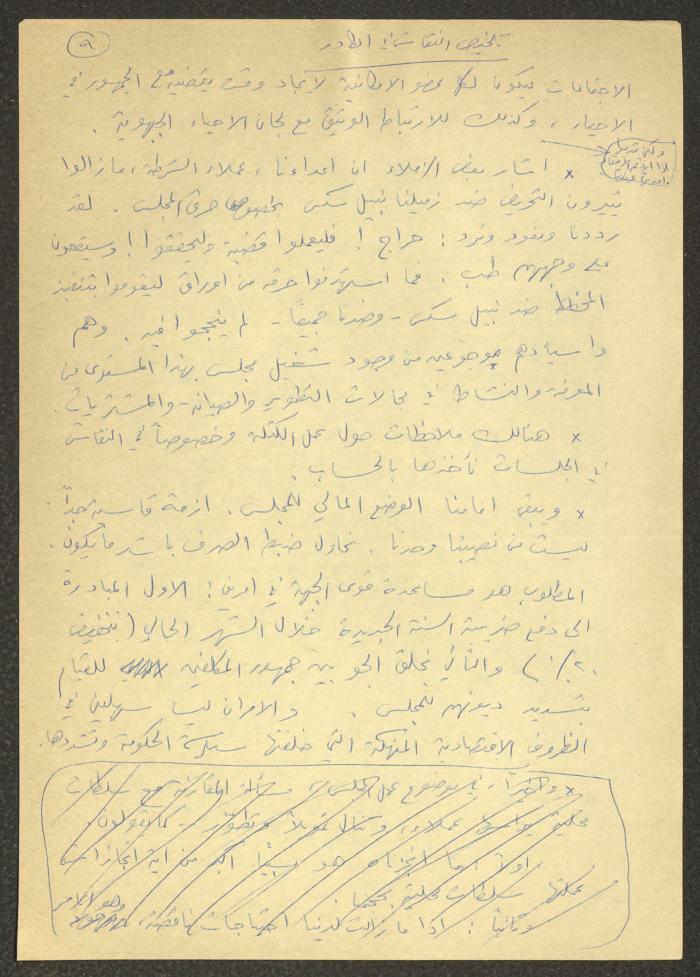 ٩
تلخيص النقاش في الكادر
الاجتماعات ليكون لكل عضو الامكانية لايجاد وقت يقضيه مع الجمهور في
الاحياء، وكذلك للارتباط الوثيق مع لجان الاحياء الجبهوية.
* اشار بعض الزملاء ان اعداءنا، عملاء السلطة، ما زالوا
يثيرون التحريض ضد زميلنا نبيل سكس بخصوص حرق المجلس. لقد
رددنا ونعود ونرد: حراج! فليعملوا قضية وليحققوا! وسيقعون
على وجههم طب. فما استهدفوا حرقه من اوراق ليقوموا بتنفيذ
المخطط ضد نبيل سكس - وضدنا جميعًا - لم ينجحوا فيه. وهم
واسيادهم موجوعين من وجود تشغيل مجلس بهذا المستوى من
المعرفة والنشاط في مجالات التطوير والصيانة والمشتريات.
* هنالك ملاحظات حول عمل الكتلة وخصوصاً في النقاش
في الجلسات نأخذها بالحساب.
* ويبقى امامنا الوضع المالي للمجلس. ازمة قاسية جداً.
ليست من نصيبنا وحدنا. نحاول ضبط الصرف باشد ما يكون.
المطلوب هو مساعدة قوى الجبهة في امرين: الاول المبادرة
الى دفع ضريبة السنة الجديدة خلال الشهر الحالي (بتخفيض
٢٠٪) والثاني نخلق الجو بين جمهور المكلفين للقيام
بتسديد ديونهم للمجلس. والامران ليسا سهلين في
الظروف الاقتصادية المنهكة التي خلقتها سياسة الحكومة وتشددها.
* واخيراً، في موضوع عمل المجلس، مسألة المقارنة مع سلطات
محلية يرأسها عملاء، وتنال تمويلاً وتطوّر - كما يقولون.
اولاً ما انجزناه هو نسبيًا اكبر من اية انجازات
عملتها سلطات محلية بحجمنا.
وثانياً: اذا ما زالت لدينا احتياجات ناقصة، وهو الامر